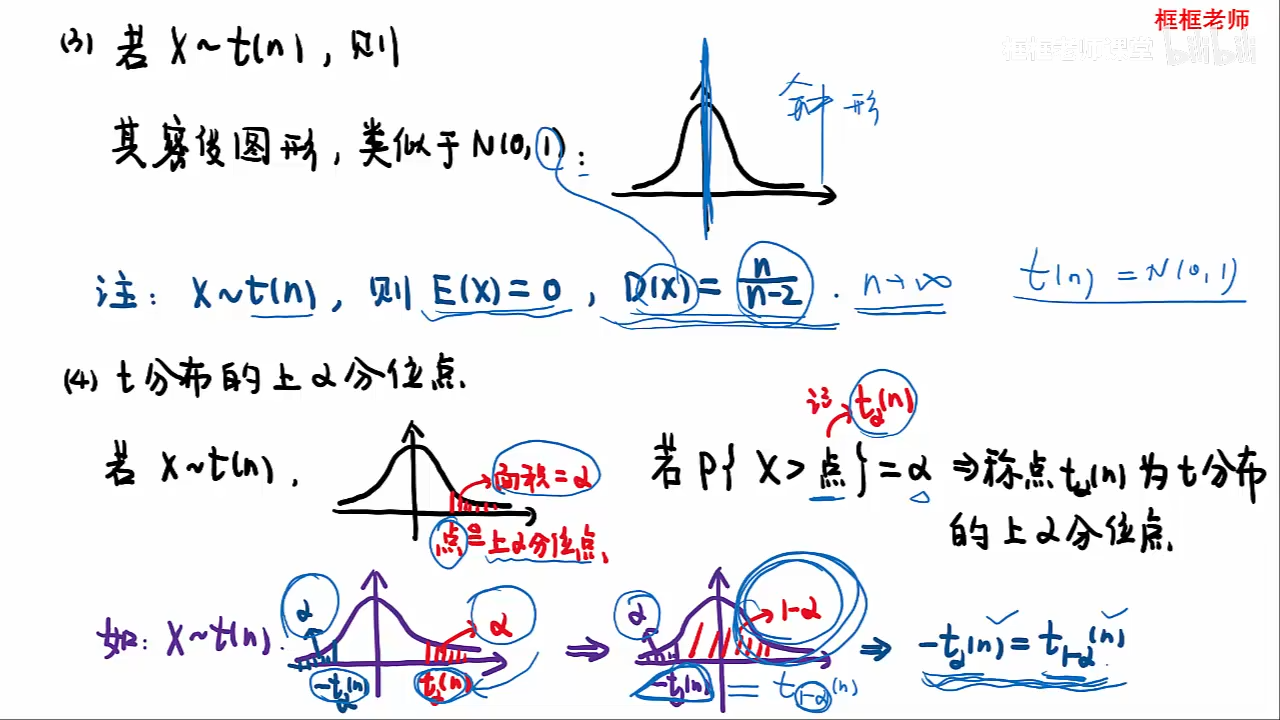 框框老师
框框老师课堂 bilibili
(3) 若 X~t(n), 则
其密度图形, 类似于N(0,1):
钟形
注: X~t(n), 则 E(X)=0, D(X)=n/(n-2). n→∞ t(n)=N(0,1)
(4) t分布的上α分位点.
若 X~t(n),
面积=α
点=上α分位点.
记 t_α(n)
若 P{X>点}=α ⇒称点t_α(n)为t分布
的上α分位点.
如: X~t(n). α α -t_α(n) t_α(n) ⇒ α 1-α -t_α(n) = t_{1-α}(n) ⇒ -t_α(n)=t_{1-α}(n)